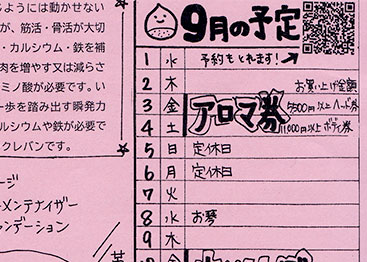 ようには動かせない
が、筋活・骨活が大切
・カルシウム・鉄を補
肉を増やす又は減らさ
ミノ酸が必要です。い
一歩を踏み出す瞬発力
ルシウムや鉄が必要で
クレバンです。
ージ
ーメンテナイザー
ァンデーション
9月の予定
1 水 予約もとれます!
2 木 お買い上げ金額
3 金 アロマ券 5500円以上ハーバ券
4 土 11000円以上ボディ券
5 日 定休日
6 月 定休日
7 火
8 水 お琴
9 木